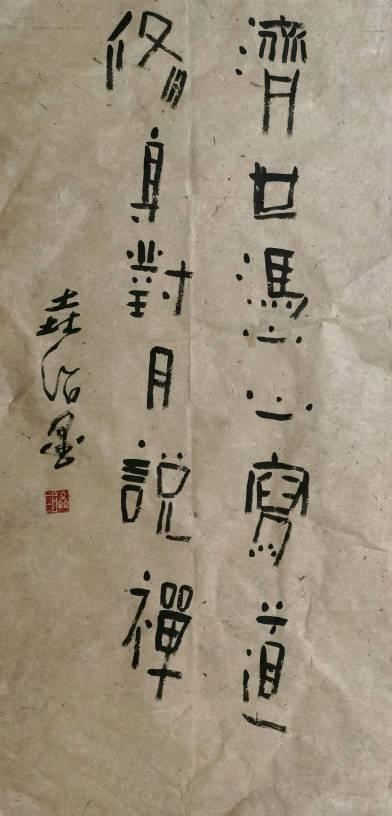 濟世憑心寫道
修身對月說禪
垚治墨